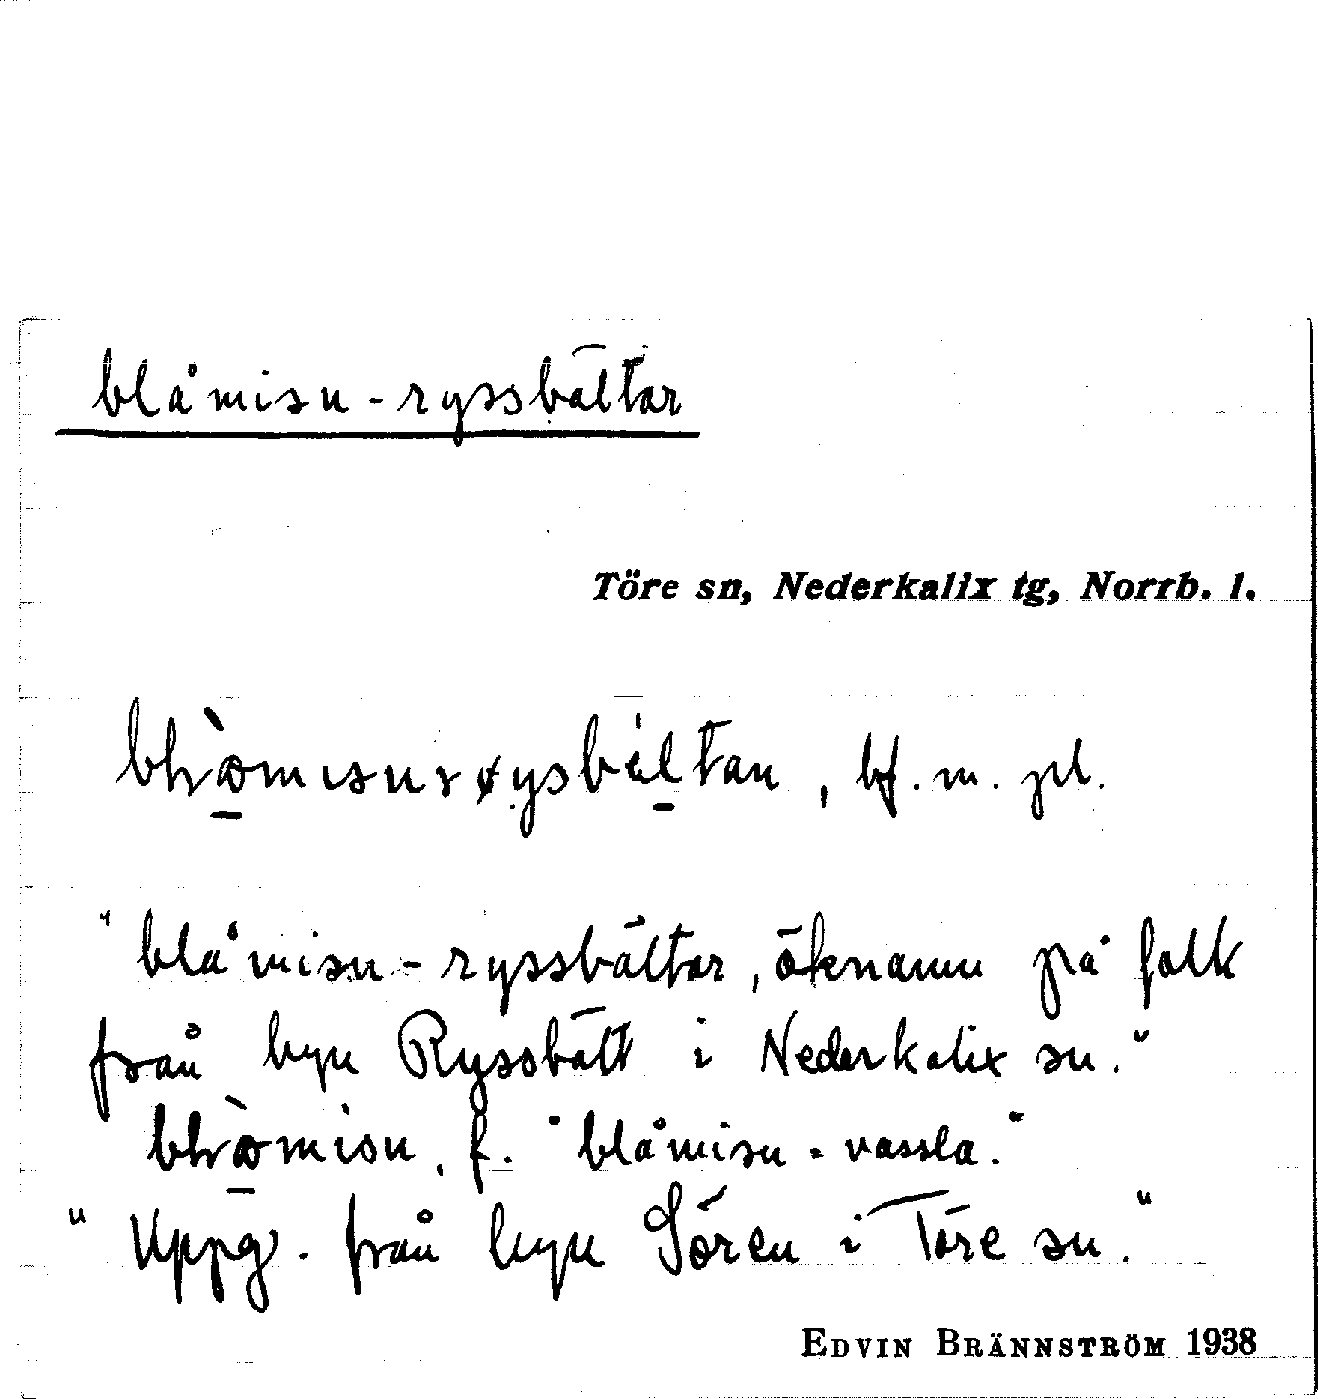 blåmisu-ryssbältar
Töre sn, Nederkalix tg, Norrb. l.
bf. m. pl.
"blåmisu-ryssbältar, öknamn på folk
från byn Ryssbält i Nederkalix sn."
f. "blåmisu-vassla."
"Uppg. från byn Sören i Töre sn."
EDVIN BRÄNNSTRÖM 1938